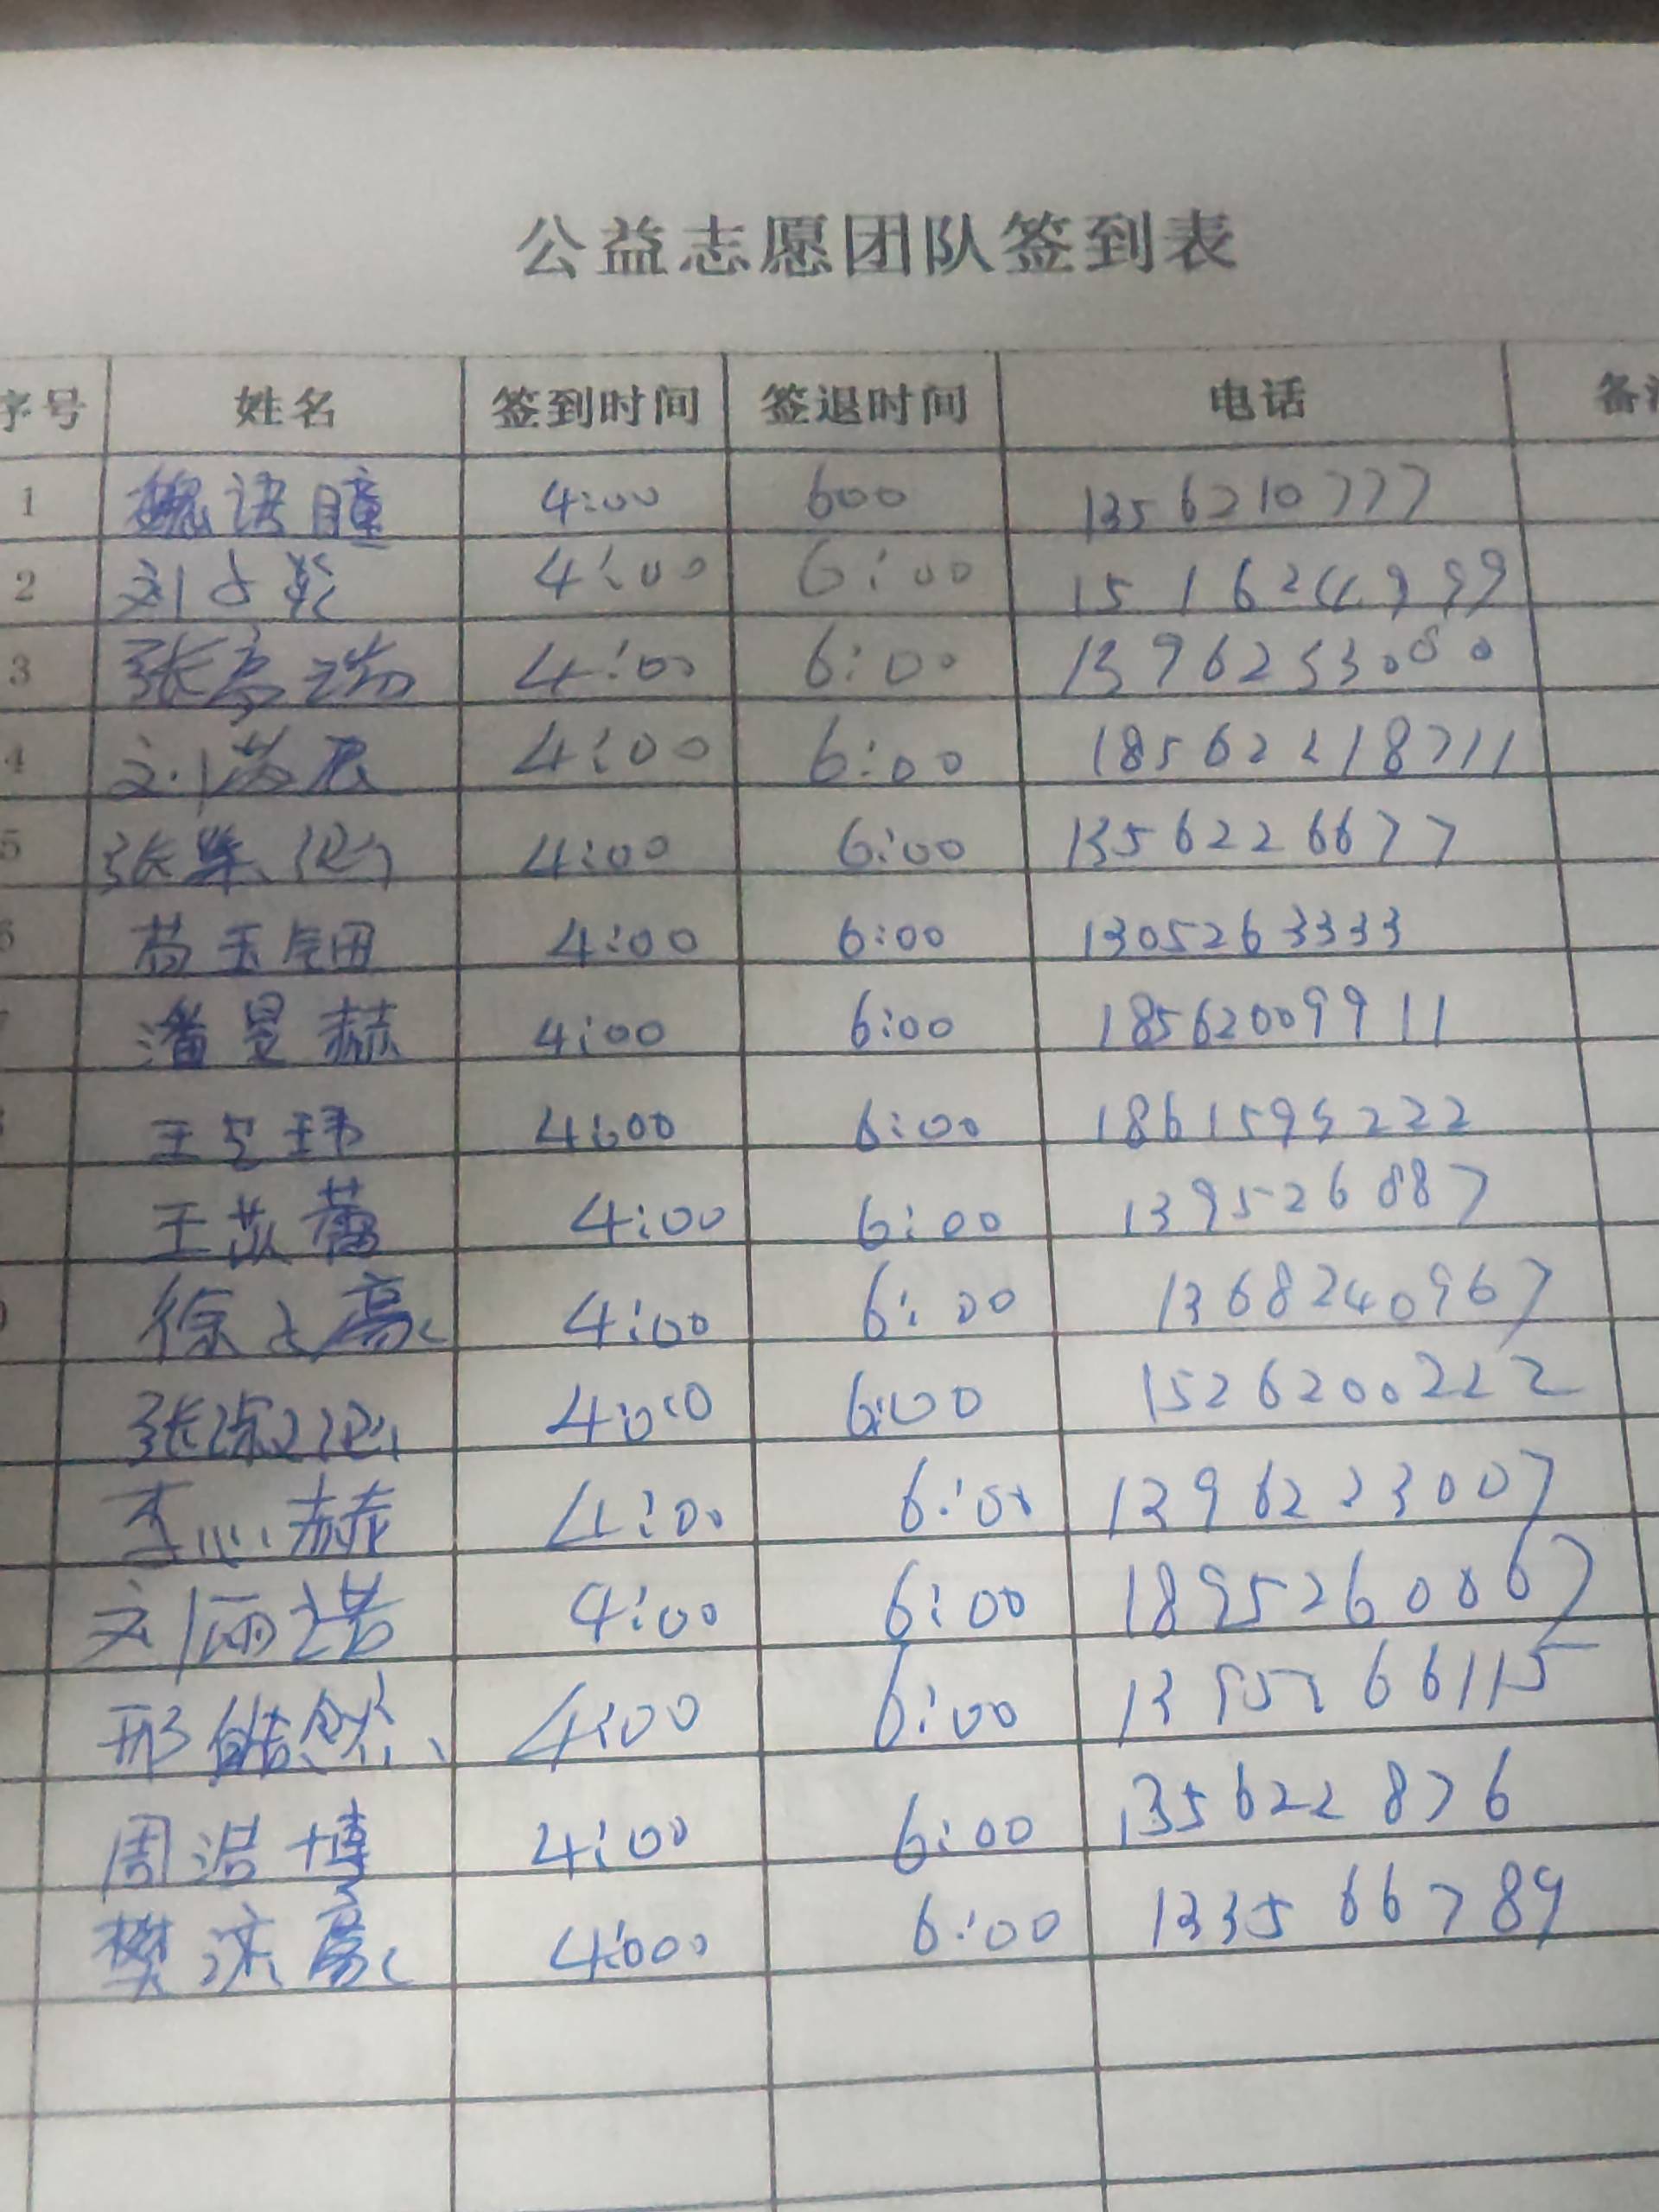 公益志愿团队签到表
序号 姓名 签到时间 签退时间 电话 备
1 魏 瞳 4:00 600 1356210777
2 刘 乾 4:00 6:00 1516249999
3 张高瑞 4:00 6:00 13962530080
4 刘 辰 4:00 6:00
5 张 4:00 6:00 1356226677
6 苟玉 4:00 6:00 1305263333
7 潘昱赫 4:00 6:00 18562009911
王 玮 4:00 6:00 1861595222
王苡蕾 4:00 6:00 139526887
徐 豪 4:00 6:00 1368240967
张 4:00 6:00 1526200222
李心赫 4:00 6:00 1396223007
刘雨诺 4:00 6:00 18952600067
邢皓然 4:00 6:00 1395266115
周浩博 4:00 6:00 135622876
樊 豪 4:000 6:00 133566789